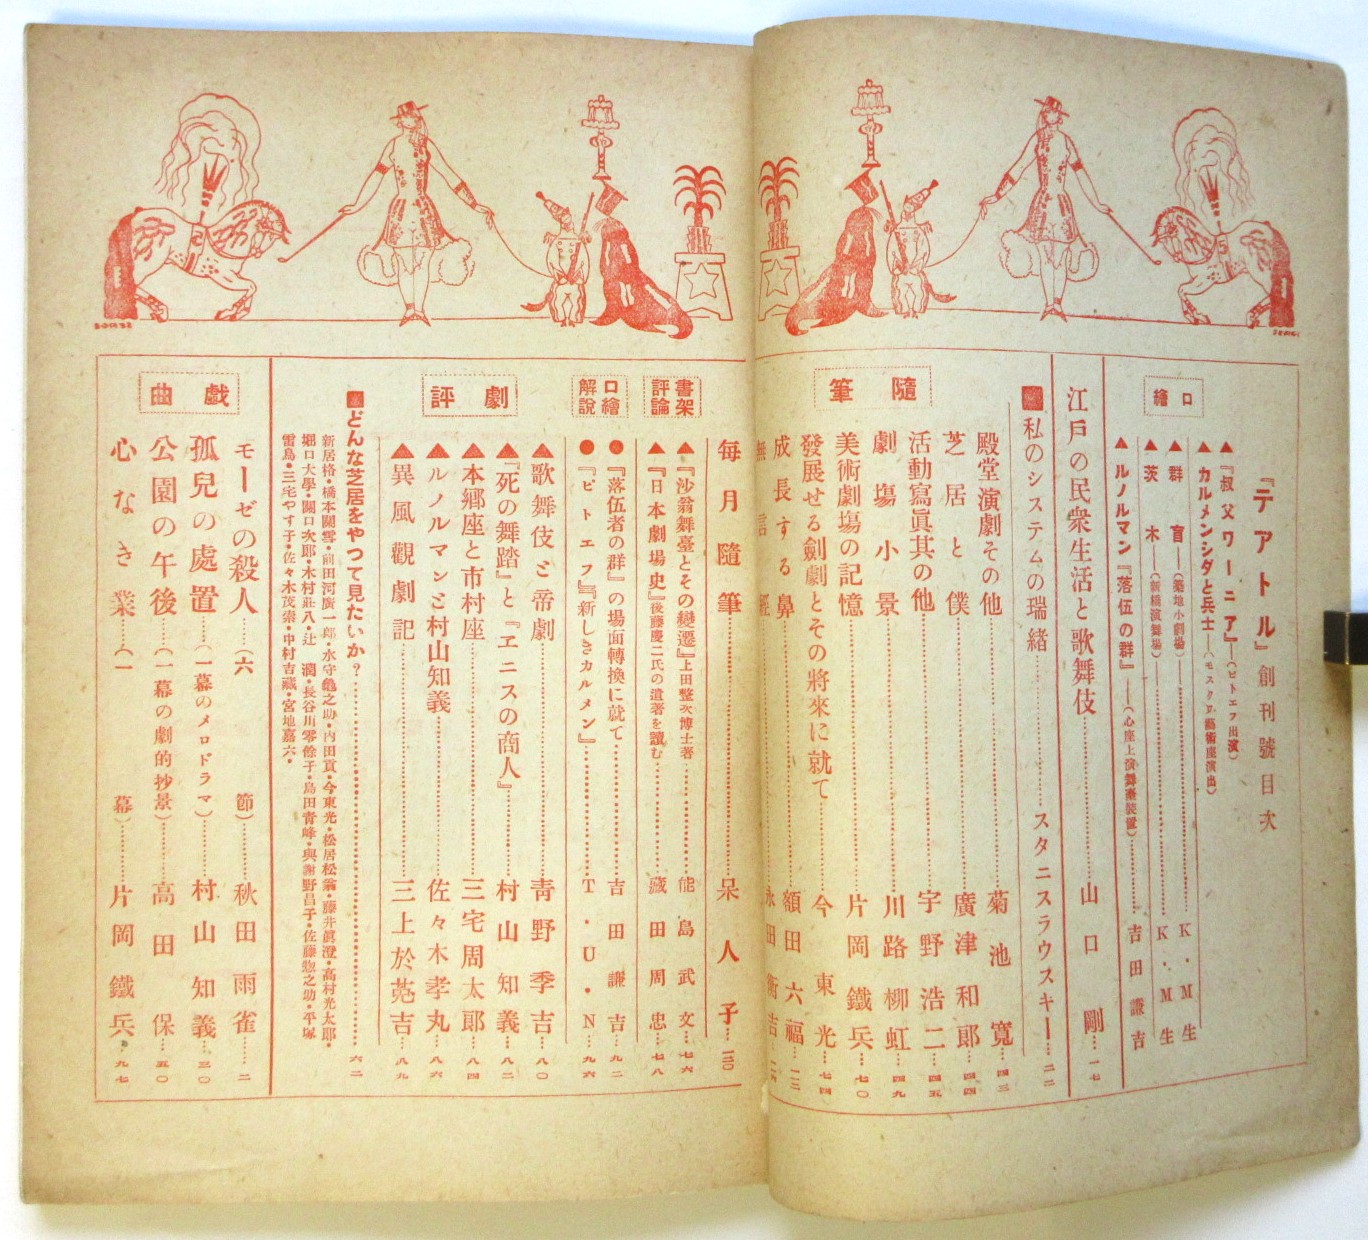 『テアトル』創刊號目次
口繪
▲『叔父ワーニア』―(ピトエフ出演)
▲カルメンシダと兵士―(モスクワ藝術座演出)
▲群盲―(築地小劇場)………K・M生
▲茨木―(新橋演舞場)………K・M生
▲ルノルマン『落伍の群』―(心座上演舞臺裝置)………吉田謙吉
江戸の民衆生活と歌舞伎………山口剛…一七
私のシステムの瑞緒………スタニスラウスキー…二二
隨筆
殿堂演劇その他………菊池寬…四三
芝居と僕………廣津和郎…四四
活動寫眞其の他………宇野浩二…四五
劇塲小景………川路柳虹…四九
美術劇塲の記憶………片岡鐵兵…七〇
發展せる劍劇とその將來に就て………今東光…七四
成長する鼻………額田六福…
無言經………永田衡吉…
每月隨筆………呆人子…
書架評論
▲『沙翁舞臺とその變遷』上田整次博士著………能島武文…七六
▲『日本劇場史』後藤慶二氏の遺著を讀む………藏田周忠…七八
口繪解說
●『落伍者の群』の場面轉換に就て………吉田謙吉…九二
●『ピトエフ』『新しきカルメン』………T・U・N…九六
劇評
▲歌舞伎と帝劇………靑野季吉…八〇
▲『死の舞踏』と『ヱニスの商人』………村山知義…八二
▲本鄕座と市村座………三宅周太郎…八四
▲ルノルマンと村山知義………佐々木孝丸…八六
▲異風觀劇記………三上於菟吉…八九
どんな芝居をやつて見たいか?………六二
新居格・橋本關雪・前田河廣一郎・水守龜之助・內田貢・今東光・松居松翁・藤井眞澄・高村光太郎・
堀口大學・關口次郎・木村莊八・辻潤・長谷川零餘子・島田靑峰・與謝野晶子・佐藤惣之助・平塚
雷鳥・三宅やす子・佐々木茂索・中村吉藏・宮地嘉六・
戲曲
モーゼの殺人……(六節)………秋田雨雀……二
孤兒の處置……(一幕のメロドラマ)………村山知義…三〇
公園の午後……(一幕の劇的抄景)………高田保…五〇
心なき業……(一幕)………片岡鐵兵…九七